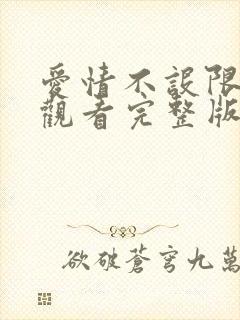 愛情不設限
觀看完整版
欲破蒼穹九萬